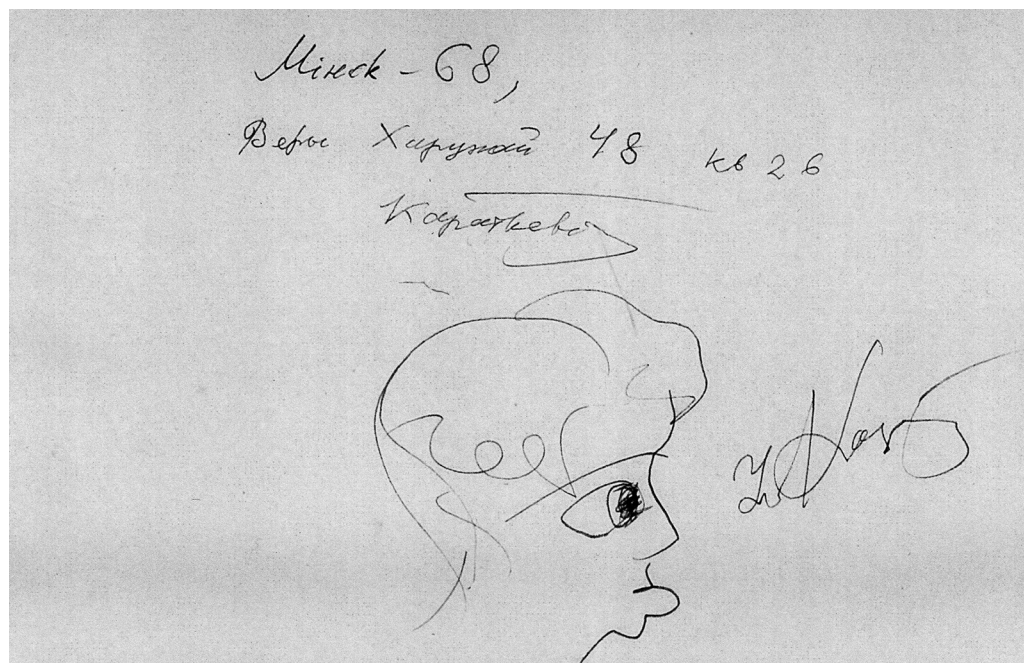 Мінск - 68,
Веры Харужай 48 кв 26
Караткевіч